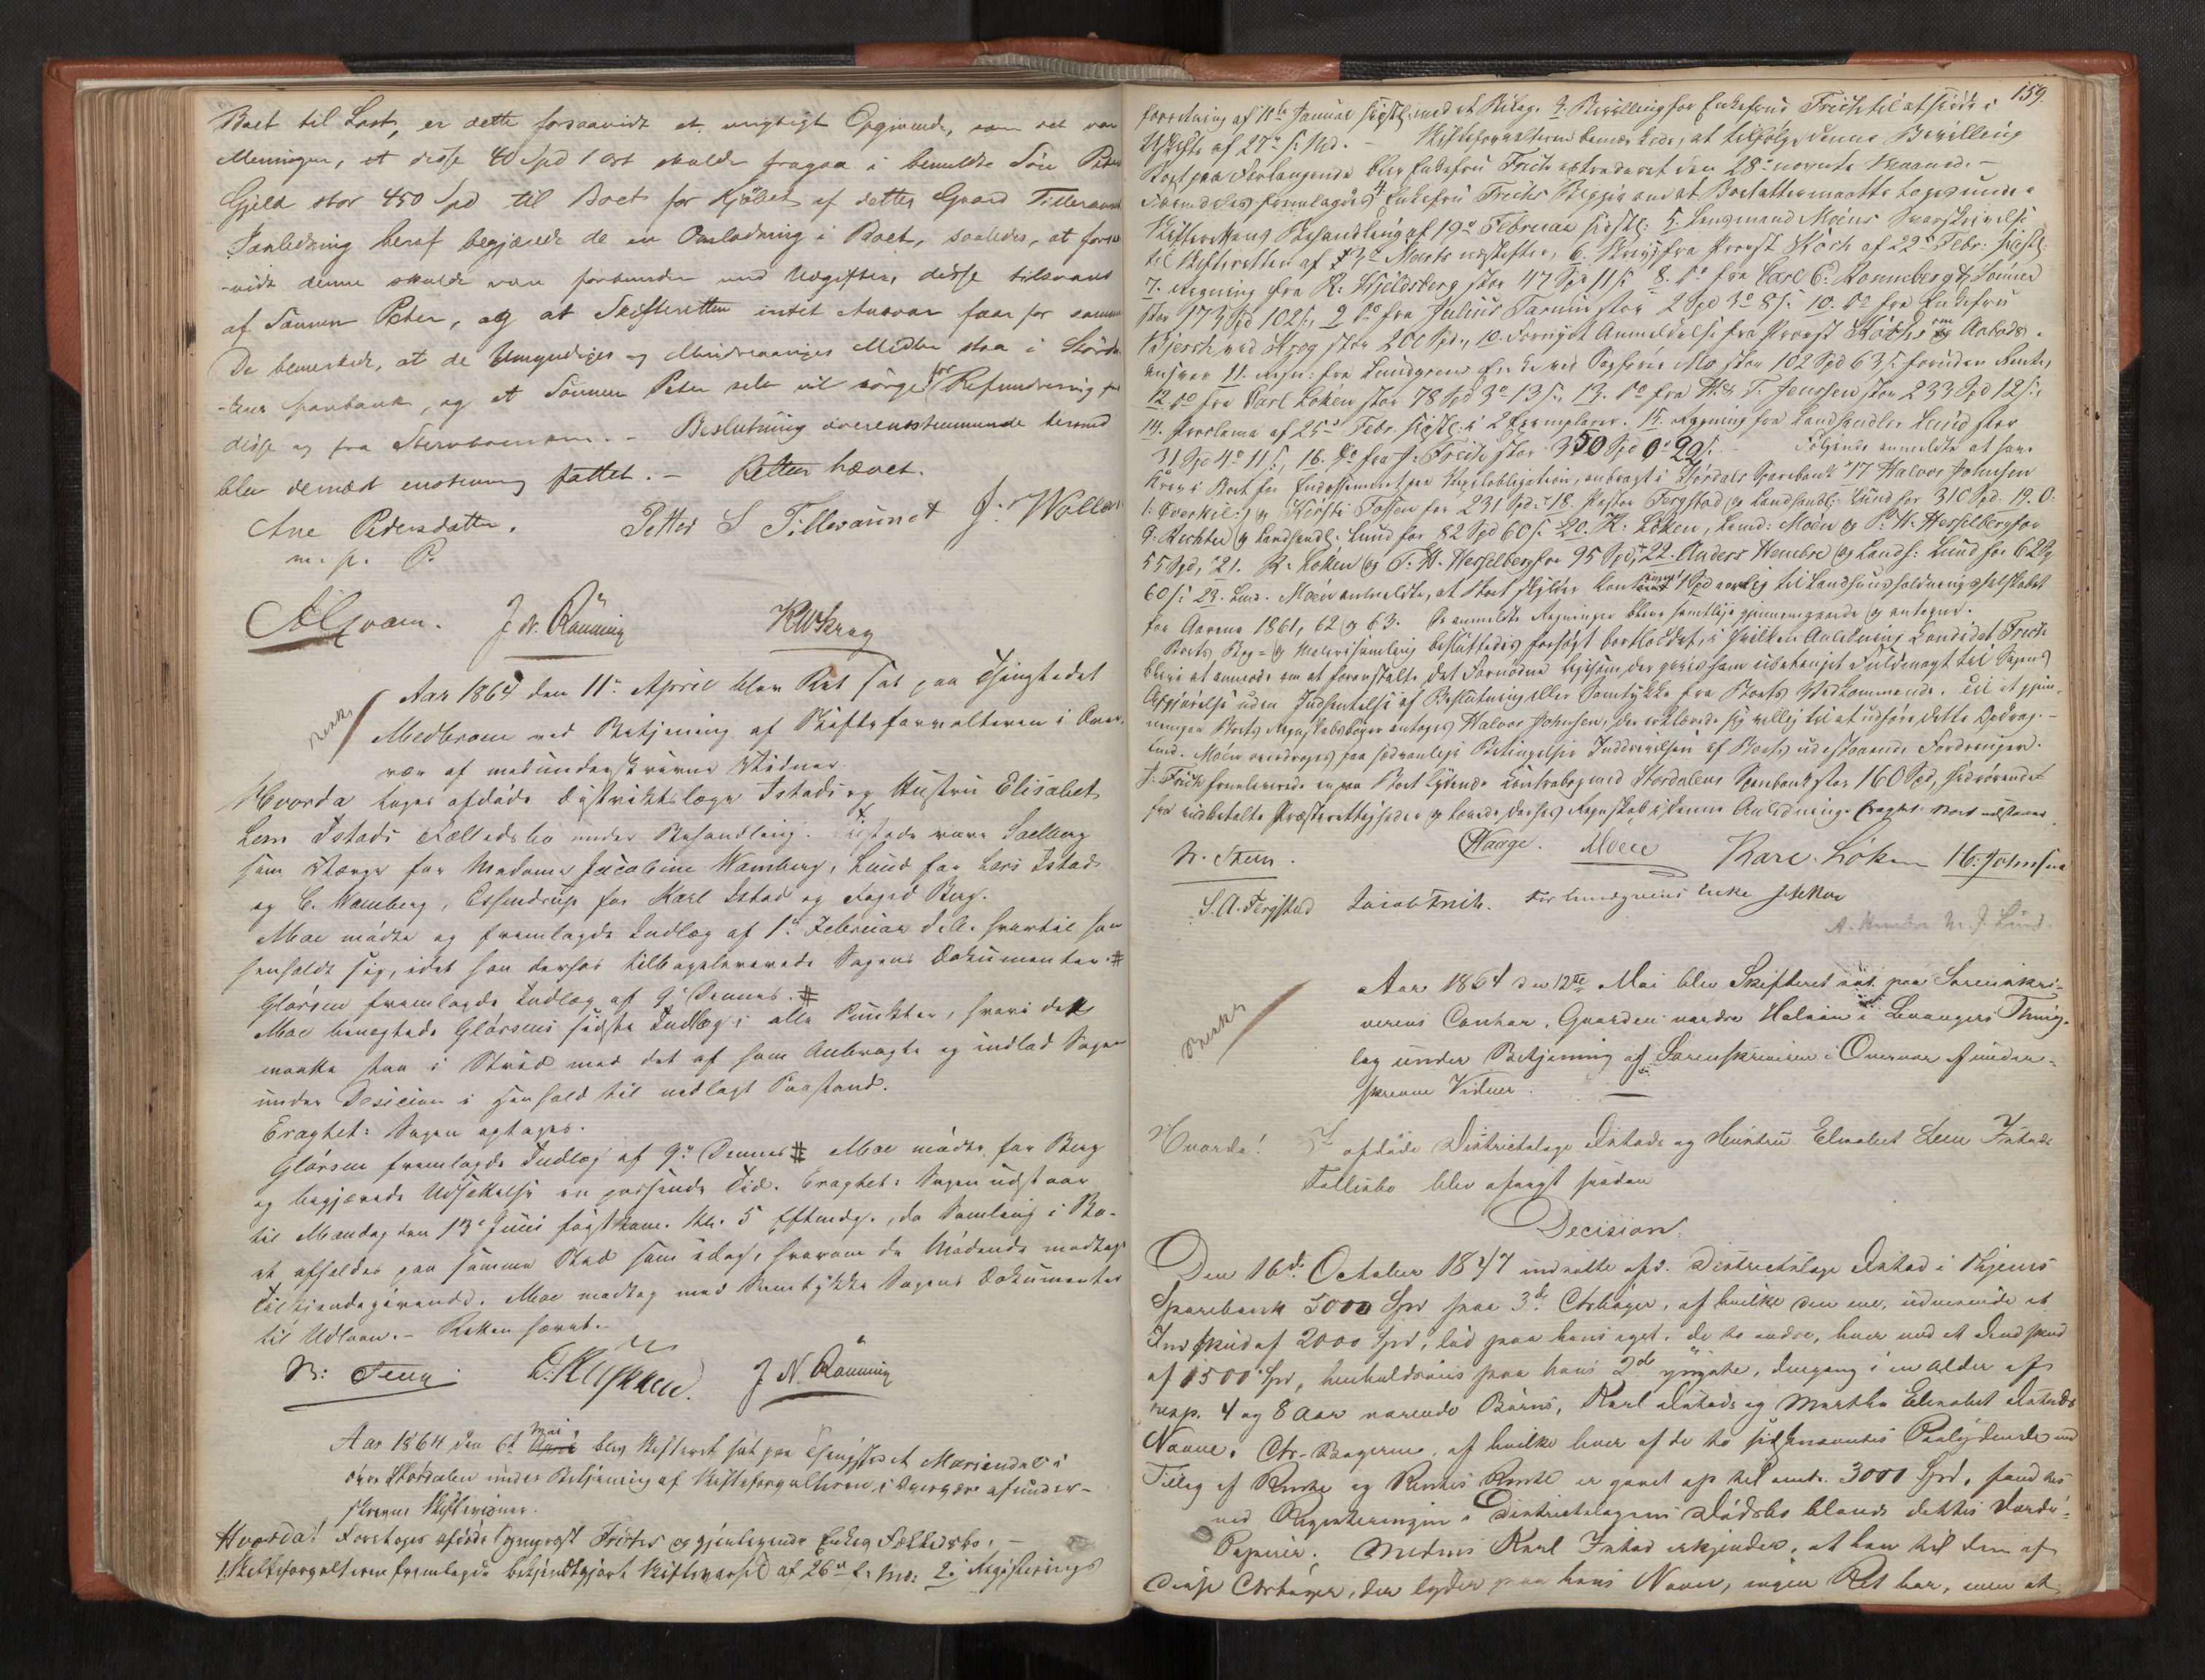 Boet til Last, er dette forsaavidt et urigtigt Opgivende, som det var
Meningen, at disse 40 Spd 1 ort skulde fragaa i bemeldte Søn Peters
Gjeld stor 450 Spd til Boet for Kjöbet af dettes Gaard Tilleraunet
I Anledning heraf begjærede de en Omlodning i Boet, saaledes, at forsaa-
-vidt denne skulde være forbunden med Udgifter, disse tilsvares
af Sønnen Peter, og at Skifteretten intet Ansvar faar for samme
De bemærkede, at de Umyndiges og Mindreaariges Midler staa i Størda-
-lens Sparebank, og at Sønnen Peter selv vil sørge for Refundering
disse og fra Stervboerne. - Beslutning overensstemmende hermed
blev dernæst enstemmig fattet. - Retten hævet.
Ane Pedersdatter. Petter S Tilleraunet J. Wollan
m. p. P.
A Qvam. J N. Rønning K W Krag
Aar 1864 den 11te April blev Ret sat paa Thingstedet
Medbroen ved Betjening af Skifteforvalteren i Over-
vær af medunderskrevne Vidner.
Hvorda toges afdøde Distriktslæge Istads og Hustru Elisabet
Lem Istads Fællesbo under Behandling. Tilstede vare Saelberg
som Værge for Madame Jacobine Wamberg, Lund for Lars Istad
og C. Wamberg, Essendrup for Karl Istad og Foged Berg.
Moe mødte og fremlagde Indlæg af 1ste Februar d. A. hvortil han
henholdt sig, idet han derhos tilbageleverede Sagens Dokumenter. #
Glørsen fremlagde Indlæg af 9de Dennes. #
Moe benegtede Glørsens sidste Indlæg i alle Punkter, hvori det
maatte staa i Strid med det af ham Anbragte og indlod Sagen
under Desicion i Henhold til nedlagt Paastand.
Eragtet: Sagen optages.
Glørsen fremlagde Indlæg af 9de Dennes # Moe mødte for Berg
og begjærede Udsættelse en passende Tid. Eragtet: Sagen udstaar
til Mandag den 13de Juni førstkom. Kl. 5 Eftmdg., da Samling i Bo-
et afholdes paa samme Sted som idag, hvorom de Mødende modtog
Tilkjendegivende. Moe modtog med Samtykke Sagens Dokumenter
til Udlaan. - Retten hævet.
J N. Rønning
Aar 1864 den 6te Mai blev Skifteret sat paa Thingstedet Mariendal i
øvre Størdalen under Betjening af Skifteforvalteren i Overvær af under-
skrevne Skiftevidner.
Hvorda! Foretoges afdøde Frichs og gjenlevende Enkes Fællesbo. -
1. Skifteforvalteren fremlagde bekjendtgjort Skiftevarsel af 26de f. Md: 2. Registrerings
159.
forretning af 11te Januar sidstl. med et Bilag. 3. Bevilling for Enkefru Frich til at sidde i
Uskifte af 27de f. Md. - Skifteforvalteren bemærkede, at tilfølge denne Bevilling
Boet paa Forlangende blev Enkefru Frich extraderet den 28de næstn. Maaned. -
Fremdeles fremlagdes 4. Enkefru Frichs Begjæring om at Boet atter maatte tages under
Skifterettens Behandling af 19de Februar sidstl. 5. Lensmand Moëns Svarskrivelse
til Skifteretten af 3de Marts næstefter, 6. Skrivelse fra Provst Koch af 22de Febr. sidstl.
7. Regning fra K. Kjeldsberg stor 47 Spd 11 s. 8. Do fra Carl C. Rønneberg & Sønner
stor 173 Spd 102 s., 9 Do fra Julius stor 2 Spd 3o 8 s. 10. Do fra Enkefru
stor 200 Spd., 10. Foreløbig Anmeldelse fra Provst Kochs om Aabods-
ansvar 11. Regn: fra Lundgreens Enke ved Mo stor 102 Spd 63 s. foruden Rente,
12 Do fra Carl Løken stor 78 Spd 3o 13 s., 13. Do fra H. & T. Jenssen stor 233 Spd 12 s.,
14. Proclama af 25de Febr. sidstl. i 2 Exemplarer. 15. Regning fra Landhandler Lund stor
31 Spd 4o 11 s., 16. Do fra J. Frich stor 350 Spd 0o 22 s. - Følgende anmeldte at have
Krav i Boet for Endossement paa Vexelobligation, anbragt i Størdals Sparebank 17 Halvor Johnsen
og Kirsti Fossen for 231 Spd. 18. Pastor Fergstad og Landhandl: Lund for 310 Spd. 19. O.
J. Richter og Landhandl: Lund for 82 Spd 60 s. 20. K. Løken, Lensmd: Moën og P. W. Hesselberg for
55 Spd, 21. K. Løken og P. W. Hesselberg for 95 Spd, 22. Anders Hembre og Landh: Lund for 62 Spd
60 s. 23. Lensm. Moën anmeldte, at Boet skylder Kontingent 1 Spd aarlig til Landhuusholdningsselskabet
for Aarene 1861, 62 og 63. De anmeldte Regninger bleve samtlige gjennemgaaede og antagne.
Boets Bog- og Malerisamling besluttedes forsøgt bortloddet, i hvilken Anledning Candidat Frich
bliver at anmode om at foranstalte det Fornødne, der gives ham ubetinget Fuldmagt til Sagens
Afgjørelse uden Indhentelse af Beslutning eller Samtykke fra Boets Vedkommende. Til at gjen-
nemgaa Boets Regnskabsbøger antoges Halvor Johnsen, der erklærede sig villig til at udføre dette Hverv. -
Lensm. Moën overdroges paa sædvanlige Betingelser Inddrivelsen af Boets udestaaende Fordringer.
J. Frich fremleverede en paa Boet lydende Contrabog med Størdalens Sparebank stor 160 Spd, hidrørende
fra indbetalte Præsterettigheder og lovede derhos Regnskab i denne Anledning. Eragtet: Boet udstaar.
N. Steen. Haage. Moën Karl Løken H. Johnsen
S. A. Fergstad Jacob Frich. For Lundgreens Enke J Mo
A. Hembre N. J. Lund.
Aar 1864 den 12te Mai blev Skifteret sat paa Sorenskri-
verens Contor, Gaarden nordre Halsan i Levangers Thing-
lag under Betjening af Sorenskriveren i Overvær af under-
skrevne Vidner.
Hvorda! I afdøde Districtslæge Istads og Hustru Elisabet Lem Istads
Fællesbo blev afsagt saadan
Decision.
Den 16de October 1847 indsatte afd. Districtslæge Istad i Skjerns
Sparebank 5000 Spd paa 3de Ctrbøger, af hvilke den ene, udvisende et
Indskud af 2000 Spd, lød paa hans eget, de to andre, hver med et Indskud
af 1500 Spd, henholdsviis paa hans 2de yngste, dengang i en Alder af
resp. 4 og 8 Aar værende Børns, Karl Istads og Martha Elisabet Istads
Navne. Ctr-Bøgerne, af hvilke hver af de to sidstnævntes Paalydende med
Tillæg af Rente og Rentes Rente er gaaet op til omtr. 3000 Spd, fandtes
ved Registreringen i Districtslægens Dødsbo blandt dettes Værdi-
Papirer. Medens Karl Istad erkjender, at han til den af
disse Ctrbøger, der lyder paa hans Navn, ingen Ret har, men at